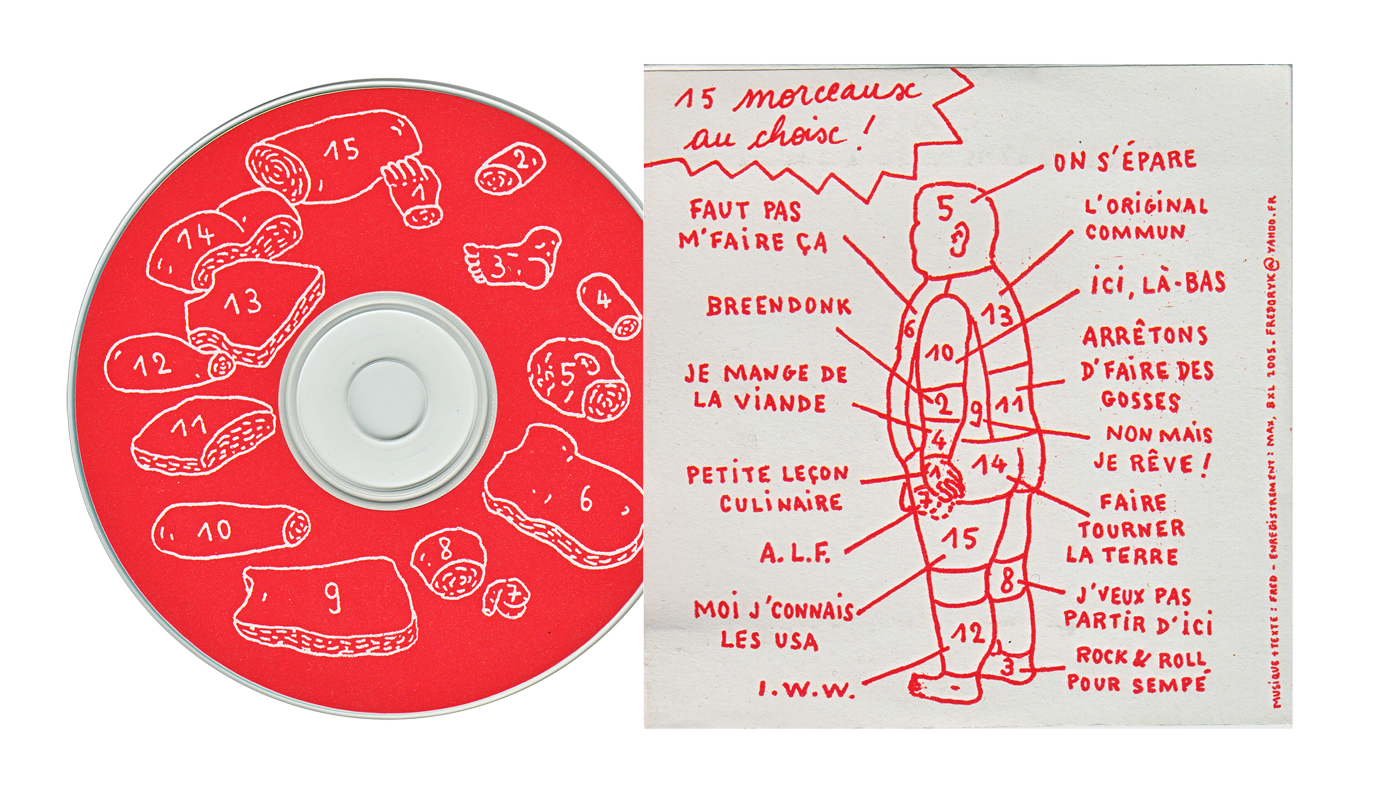 15
1
2
14
3
13
4
12
5
11
6
10
8
7
9
15 morceaux
au choix !
ON S'ÉPARE
FAUT PAS
M'FAIRE ÇA
L'ORIGINAL
COMMUN
ICI, LÀ-BAS
BREENDONK
ARRÊTONS
D'FAIRE DES
GOSSES
JE MANGE DE
LA VIANDE
NON MAIS
JE RÊVE !
PETITE LEÇON
CULINAIRE
FAIRE
TOURNER
LA TERRE
A.L.F.
J'VEUX PAS
PARTIR D'ICI
MOI J'CONNAIS
LES USA
ROCK & ROLL
POUR SEMPÉ
I.W.W.
5
6
13
10
2
9
11
4
14
1
7
15
8
12
3
MUSIQUE + TEXTE : FRED - ENREGISTREMENT : MAX, BXL 2005. FREDORYK@YAHOO.FR